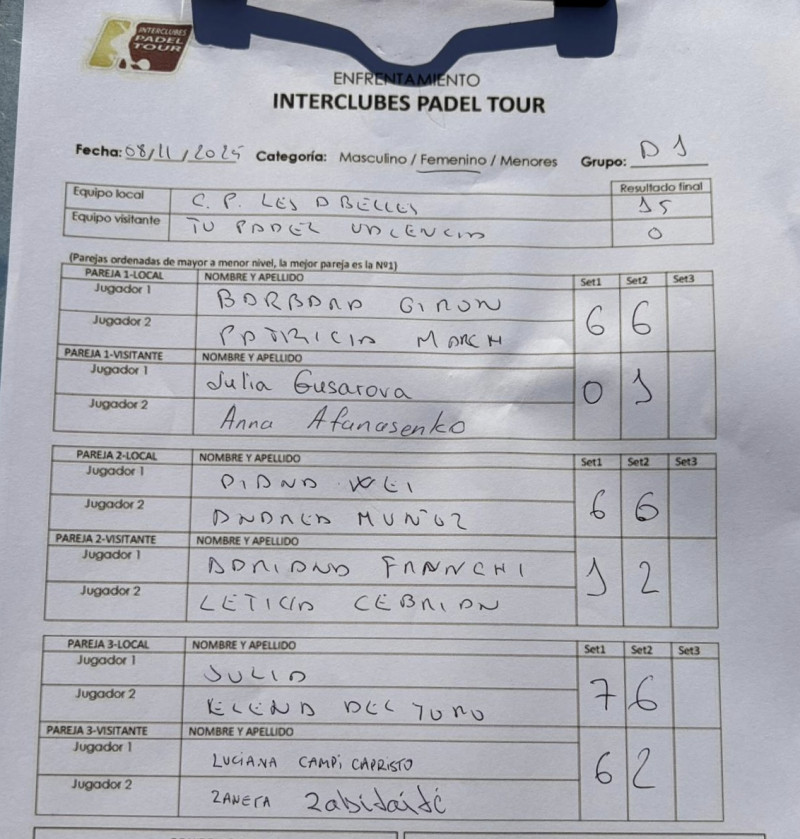 INTERCLUBES
PADEL
TOUR
ENFRENTAMIENTO
INTERCLUBES PADEL TOUR
Fecha: 08/11/2025 Categoría: Masculino / Femenino / Menores Grupo: D1
Equipo local C. P. LES ABELLES Resultado final 15
Equipo visitante TU PADEL VALENCIA 0
(Parejas ordenadas de mayor a menor nivel, la mejor pareja es la Nº1)
PAREJA 1-LOCAL NOMBRE Y APELLIDO Set1 Set2 Set3
Jugador 1 BARBARA GIRON
6 6
Jugador 2 PATRICIA MARCH
PAREJA 1-VISITANTE NOMBRE Y APELLIDO
Jugador 1 Julia Gusarova
0 1
Jugador 2 Anna Afanasenko
PAREJA 2-LOCAL NOMBRE Y APELLIDO Set1 Set2 Set3
Jugador 1 DIANA
6 6
Jugador 2 ANDREA MUÑOZ
PAREJA 2-VISITANTE NOMBRE Y APELLIDO
Jugador 1 ADRIANA FRANCHI
1 2
Jugador 2 LETICIA CEBRIAN
PAREJA 3-LOCAL NOMBRE Y APELLIDO Set1 Set2 Set3
Jugador 1 JULIA
7 6
Jugador 2 ELENA DEL TORO
PAREJA 3-VISITANTE NOMBRE Y APELLIDO
Jugador 1 LUCIANA CAMPI CAPRISTO
6 2
Jugador 2 ZANETA